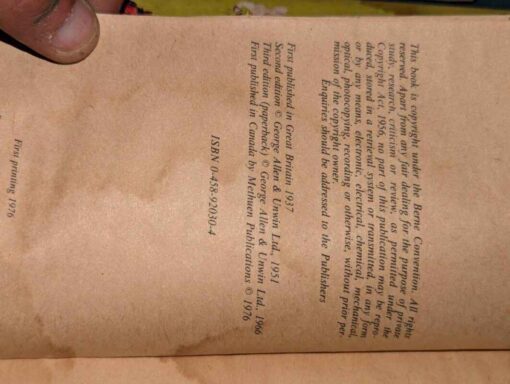 This book is copyright under the Berne Convention. All rights
reserved. Apart from any fair dealing for the purpose of private
study, research, criticism or review, as permitted under the
Copyright Act, 1956, no part of this publication may be repro-
duced, stored in a retrieval system or transmitted, in any form
or by any means, electronic, electrical, chemical, mechanical,
optical, photocopying, recording or otherwise, without prior per-
mission of the copyright owner.
Enquiries should be addressed to the Publishers
First published in Great Britain 1937
Second edition © George Allen & Unwin Ltd., 1951
Third edition (paperback) © George Allen & Unwin Ltd., 1966
First published in Canada by Methuen Publications © 1976
ISBN 0-458-92030-4
First printing 1976